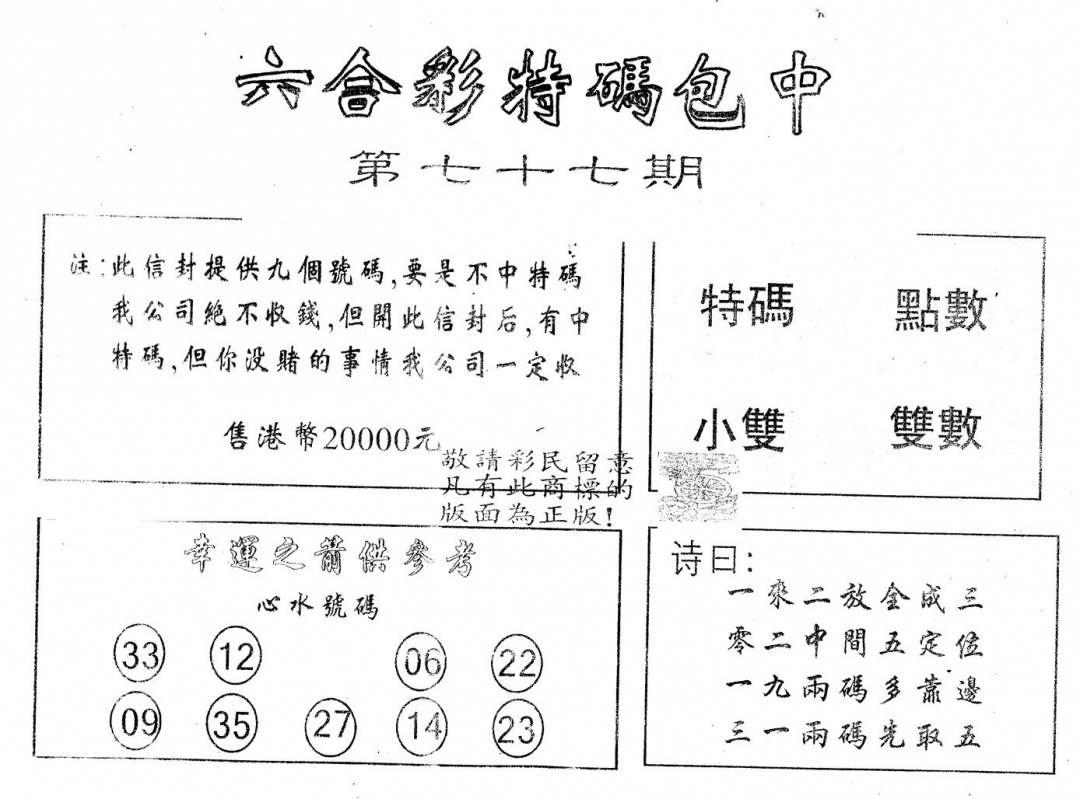 六合彩特碼包中
第七十七期
注：此信封提供九個號碼,要是不中特碼
我公司絕不收錢,但開此信封后,有中
特碼,但你没賭的事情我公司一定收
售港幣20000元
特碼 點數
小雙 雙數
敬請彩民留意
凡有此商標的
版面為正版!
幸運之箭供參考
心水號碼
33 12 06 22
09 35 27 14 23
诗曰：
一來二放金成三
零二中間五定位
一九兩碼多靠邊
三一兩碼先取五